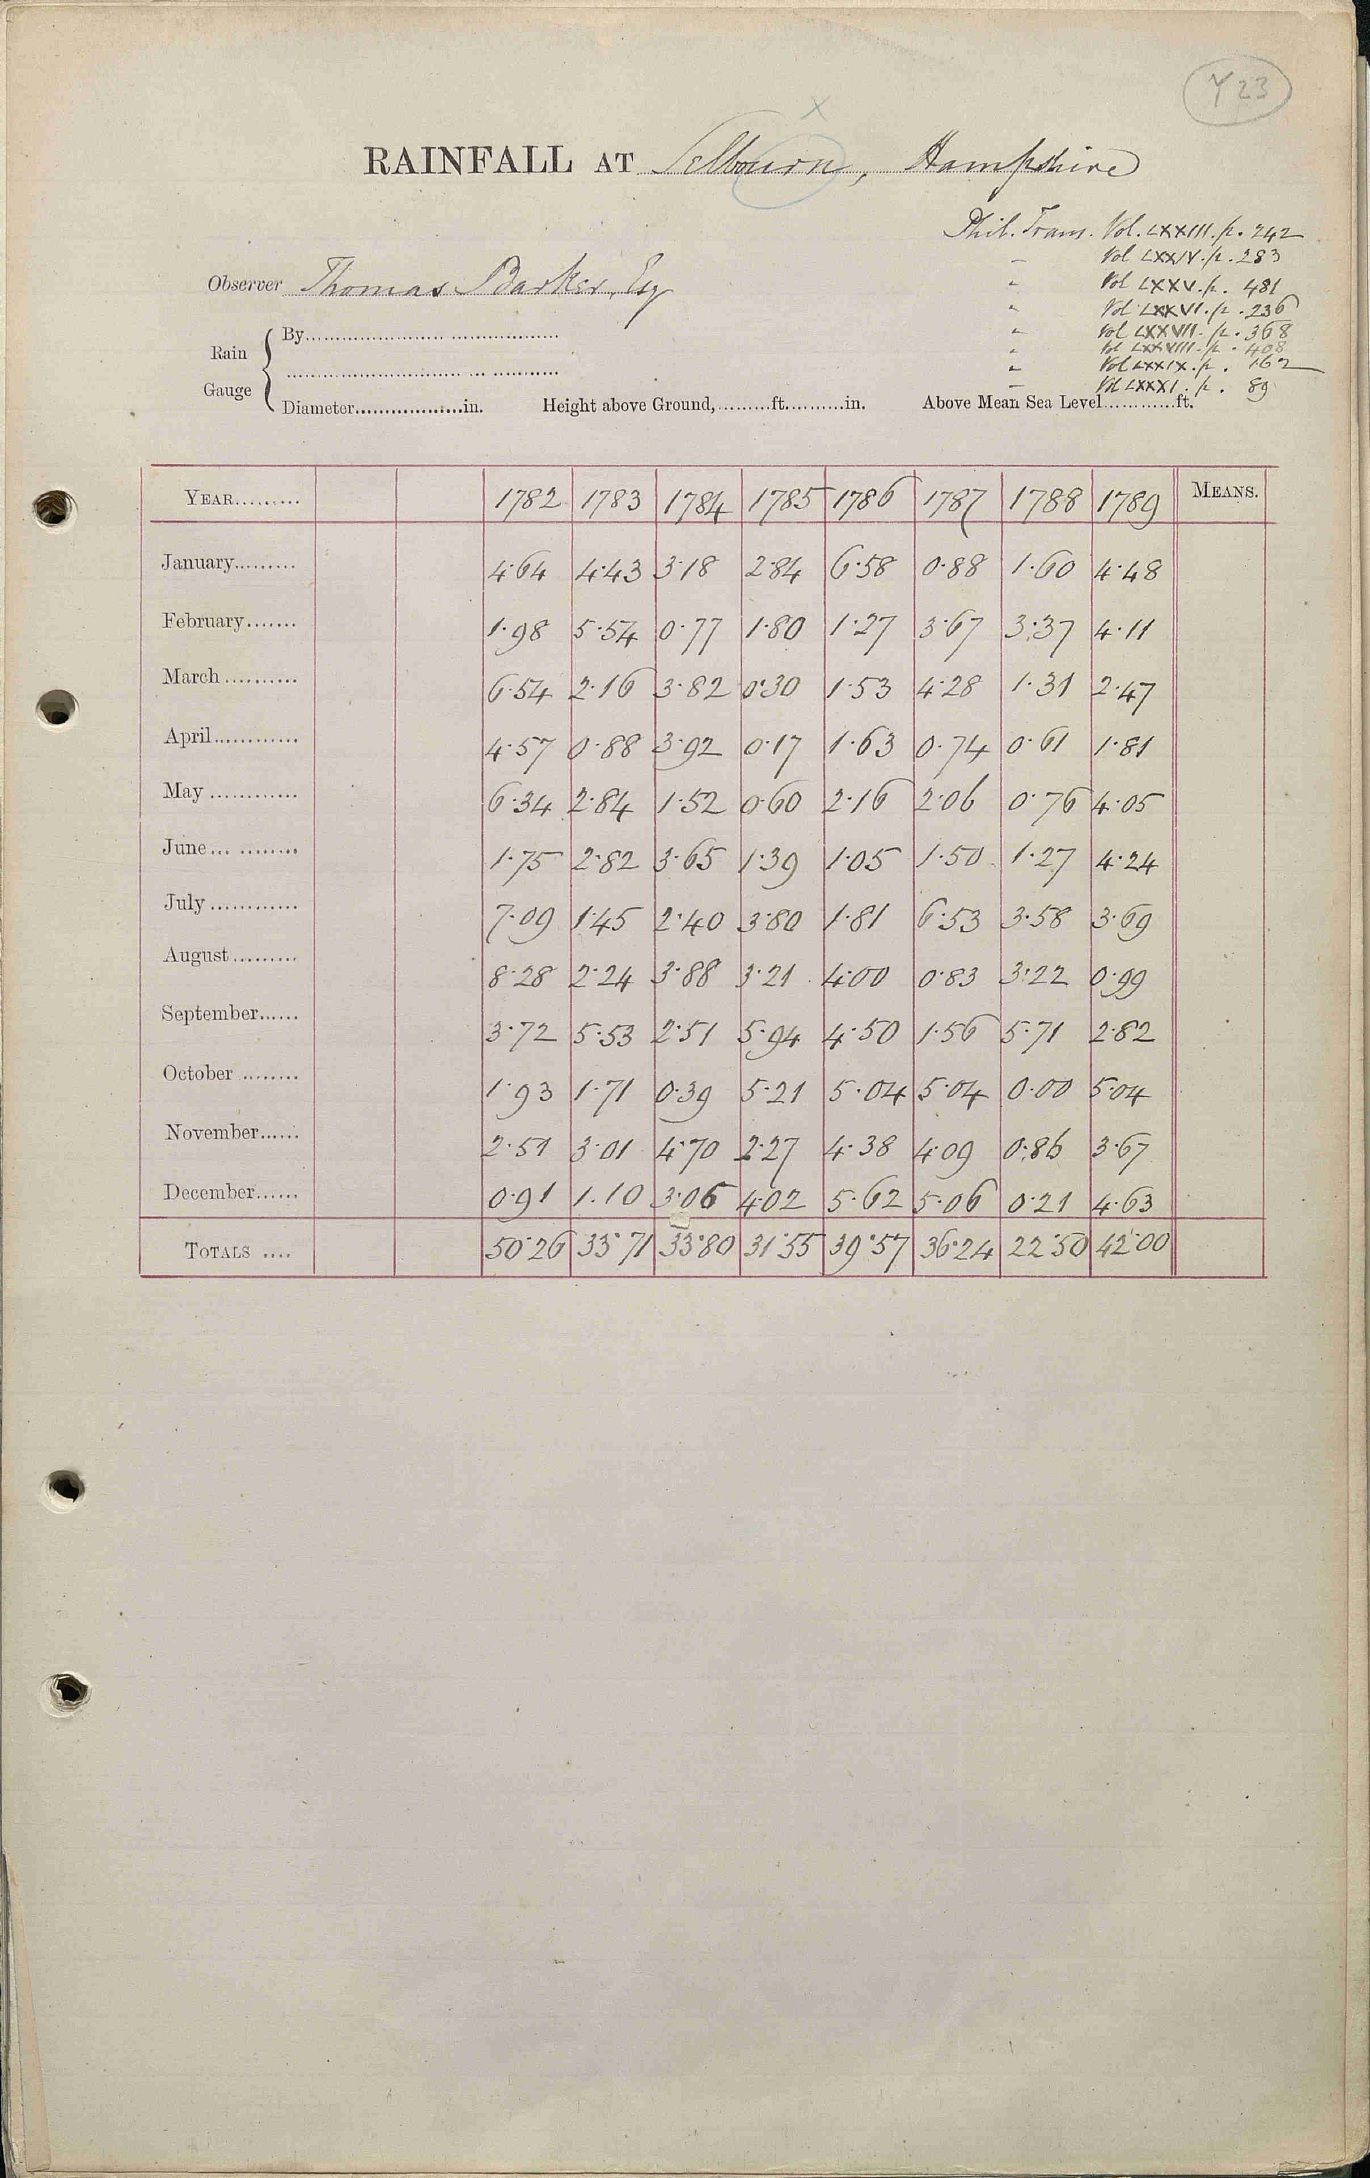 Y 23
x
RAINFALL AT Selbourn, Hampshire
Phil. Trans. Vol. LXXIII. p. 242
" Vol LXXIV. p. 283
Observer Thomas Barker, Esq
" Vol LXXV. p. 481
" Vol LXXVI. p. 236
" Vol LXXVII. p. 368
" Vol LXXVIII. p. 408
" Vol LXXIX. p. 162
" Vol LXXXI. p. 89
Rain Gauge
By
Diameter in. Height above Ground, ft. in. Above Mean Sea Level ft.
YEAR 1782 1783 1784 1785 1786 1787 1788 1789 MEANS.
January 4.64 4.43 3.18 2.84 6.58 0.88 1.60 4.48
February 1.98 5.54 0.77 1.80 1.27 3.67 3.37 4.11
March 6.54 2.16 3.82 0.30 1.53 4.28 1.31 2.47
April 4.57 0.88 3.92 0.17 1.63 0.74 0.61 1.81
May 6.34 2.84 1.52 0.60 2.16 2.06 0.76 4.05
June 1.75 2.82 3.65 1.39 1.05 1.50 1.27 4.24
July 7.09 1.45 2.40 3.80 1.81 6.53 3.58 3.69
August 8.28 2.24 3.88 3.21 4.00 0.83 3.22 0.99
September 3.72 5.53 2.51 5.94 4.50 1.56 5.71 2.82
October 1.93 1.71 0.39 5.21 5.04 5.04 0.00 5.04
November 2.51 3.01 4.70 2.27 4.38 4.09 0.86 3.67
December 0.91 1.10 3.06 4.02 5.62 5.06 0.21 4.63
TOTALS 50.26 33.71 33.80 31.55 39.57 36.24 22.50 42.00